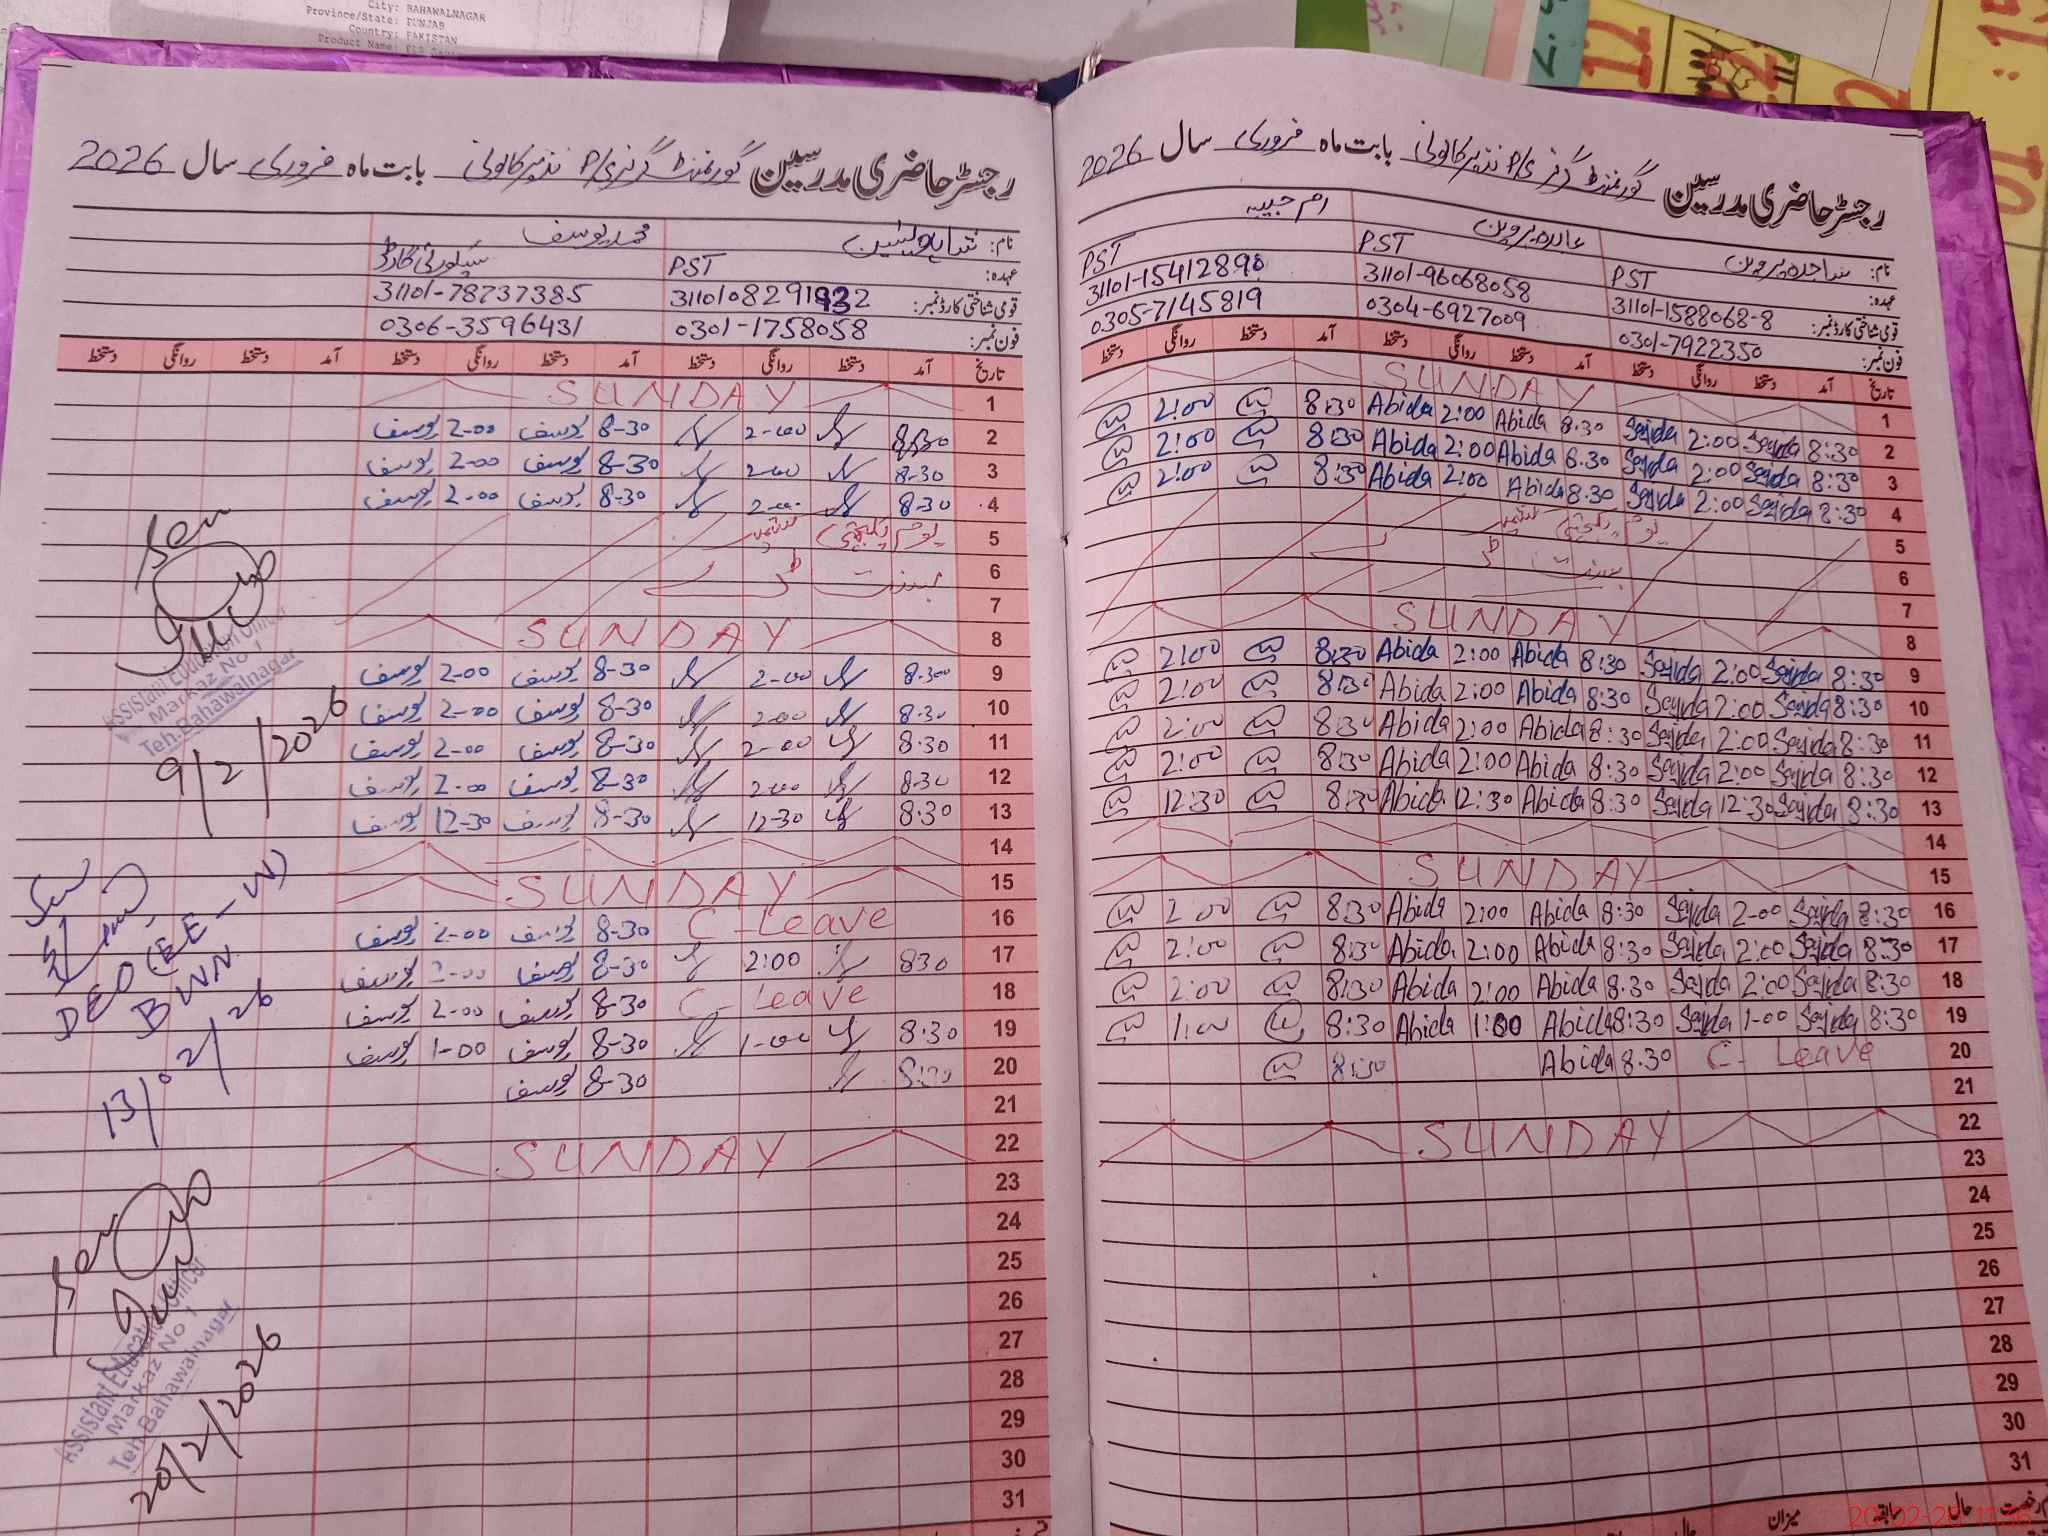 City: BAHAWALNAGAR
Province/State: PUNJAB
Country: PAKISTAN
Product Name:
رجسٹر حاضری مدرسین گورنمنٹ گرلز P/S نذیر کالونی بابت ماہ فروری سال 2026
نام: محمد یوسف
عہدہ: PST سیکورٹی گارڈ
قومی شناختی کارڈ نمبر: 31101-78737385
فون نمبر: 0301-1758058 0306-3596431
تاریخ آمد دستخط روانگی دستخط آمد دستخط روانگی دستخط آمد دستخط روانگی دستخط
1 SUNDAY
2 8:30 2-00 8-30 یوسف 2-00 یوسف
3 8-30 2-00 8-30 یوسف 2-00 یوسف
4 8-30 2-00 8-30 یوسف 2-00 یوسف
5 یوم یکجہتی کشمیر
6 بسنت
7
8 SUNDAY
9 8-30 2-00 8-30 یوسف 2-00 یوسف
10 8-30 2-00 8-30 یوسف 2-00 یوسف
11 8-30 2-00 8-30 یوسف 2-00 یوسف
12 8-30 2-00 8-30 یوسف 2-00 یوسف
13 8:30 12-30 8-30 یوسف 12-30 یوسف
14
15 SUNDAY
16 C-Leave 8-30 یوسف 2-00 یوسف
17 830 2:00 8-30 یوسف 2-00 یوسف
18 C-Leave 8-30 یوسف 2-00 یوسف
19 8:30 1-00 8-30 یوسف 1-00 یوسف
20 8:30 8-30 یوسف
21
22 SUNDAY
23
24
25
26
27
28
29
30
31
Assistant Education Officer
Markaz No 1
Teh.Bahawalnagar
9/2/2026
DEO (EE-W)
BWN
13/02/26
Assistant Education Officer
Markaz No 1
Teh.Bahawalnagar
20/2/2026
رجسٹر حاضری مدرسین گورنمنٹ گرلز P/S نذیر کالونی بابت ماہ فروری سال 2026
نام: ساجدہ پروین عابدہ پروین ام حبیبہ
عہدہ: PST PST PST
قومی شناختی کارڈ نمبر: 31101-1588068-8 31101-96068058 31101-15412890
فون نمبر: 0301-7922350 0304-6927009 0305-7145819
تاریخ آمد دستخط روانگی دستخط آمد دستخط روانگی دستخط آمد دستخط روانگی دستخط
1 SUNDAY
2 8:30 Sajda 2:00 Sajda 8.30 Abida 2:00 Abida 8:30 2:00
3 8:30 Sajda 2:00 Sajda 8.30 Abida 2:00 Abida 8:30 2:00
4 8:30 Sajda 2:00 Sajda 8.30 Abida 2:00 Abida 8:30 2:00
5 یوم یکجہتی کشمیر
6 بسنت
7
8 SUNDAY
9 8:30 Sajda 2:00 Sajda 8:30 Abida 2:00 Abida 8:30 2:00
10 8:30 Sajda 2:00 Sajda 8:30 Abida 2:00 Abida 8:30 2:00
11 8:30 Sajda 2:00 Sajda 8:30 Abida 2:00 Abida 8:30 2:00
12 8:30 Sajda 2:00 Sajda 8:30 Abida 2:00 Abida 8:30 2:00
13 8:30 Sajda 12:30 Sajda 8:30 Abida 12:30 Abida 8:30 12:30
14
15 SUNDAY
16 8:30 Sajda 2-00 Sajda 8:30 Abida 2:00 Abida 8:30 2:00
17 8:30 Sajda 2:00 Sajda 8:30 Abida 2:00 Abida 8:30 2:00
18 8:30 Sajda 2:00 Sajda 8.30 Abida 2:00 Abida 8:30 2:00
19 8:30 Sajda 1-00 Sajda 8:30 Abida 1:00 Abida 8:30 1:00
20 C-Leave 8.30 Abida 8:30
21
22 SUNDAY
23
24
25
26
27
28
29
30
31
رخصت حالیہ سابقہ میزان